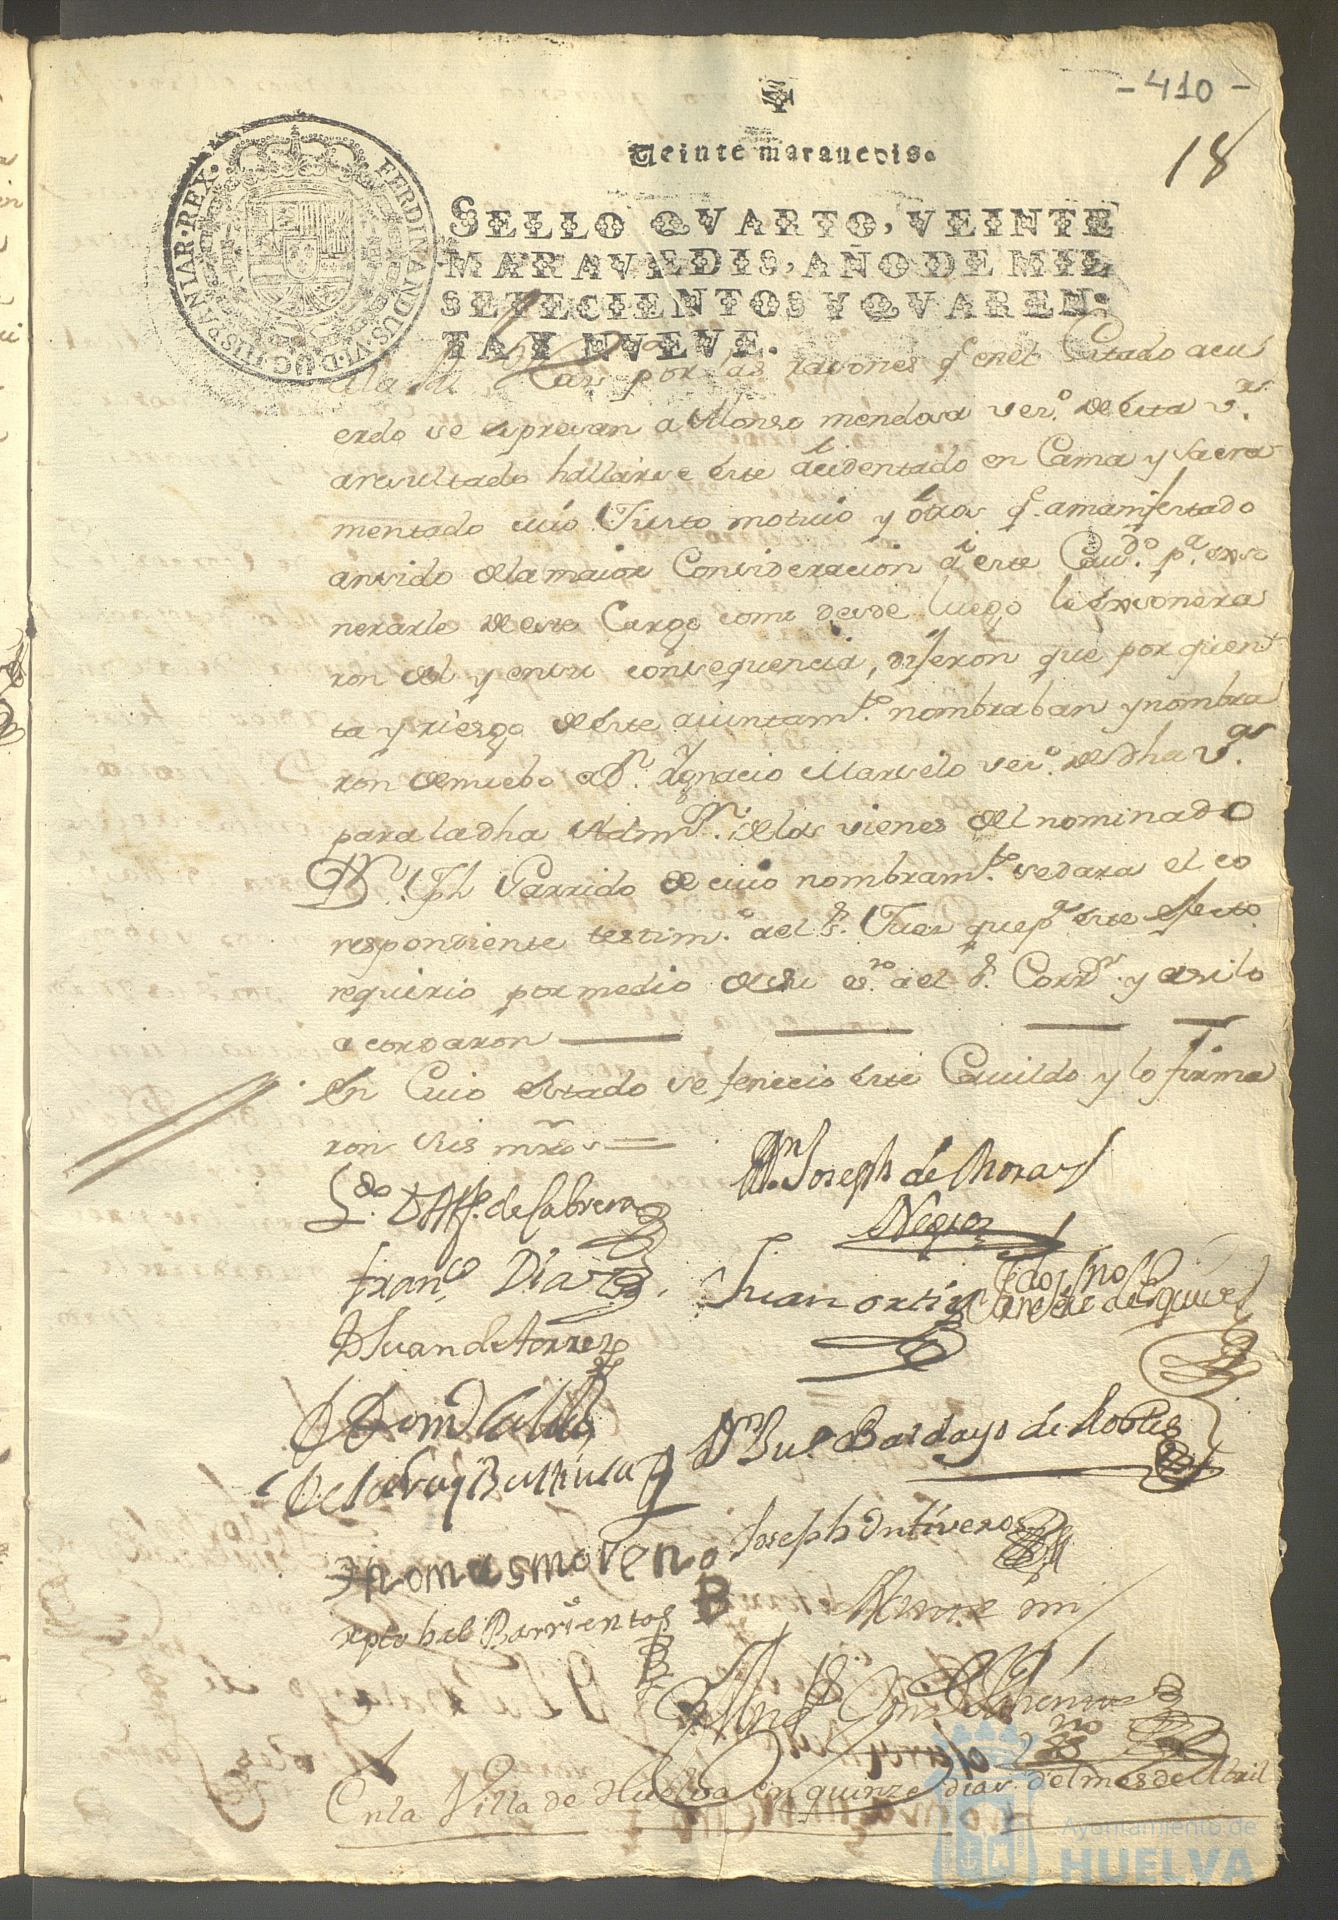 - 410 -
18
Veinte marauedis.
SELLO QVARTO, VEINTE
MARAVEDIS, AÑO DE MIL
SETECIENTOS Y QVAREN-
TA Y NVEVE.
FERDINANDUS·VI·D·G·HISPANIAR·REX·
por las razones q̃ enel Citado acu
erdo se espresan a Alonso mendosa vez.º de ésta v.ª
a resultado hallarse éste acidentado en Cama y sacra
mentado cuio Justo motiuo y ótros q̃ amanifestado
ansido dela maior Consideracion á este Cau.do p.a exso
nerarle de este Cargo como desde luego le éxsonera
ron del y en su consequencia, dijeron que por quen
ta y riesgo de éste aiuntam.to nombraban y nombra
ron de nuebo a D.n Ygnacio Marselo vez.º de dha v.ª
para la dha Adm.on de los vienes del nominado
D.n Jph Garrido de cuio nombram.to se dara el co
respondiente testim.º a el S.r Juez que p.a éste efecto
requirio por medio de su es.no a el S.r Corr.or y asi lo
acordaron
En Cuio estado se fenecio éste Cauildo y lo firma
ron sus mrds
L.do D Alf.º de Cabrera
D.n Joseph de Mora y
Negro
Fran.co Diaz
Juan ortiz
D Juan de torres
D.n Bu.l Bardayo de Robles
Thomas moreno
Joseph Ontiveros
xptobal Barrientos
Ante mi
En la Villa de Huelba en quinze dias del mes de Abril
Ayuntamiento de
HUELVA